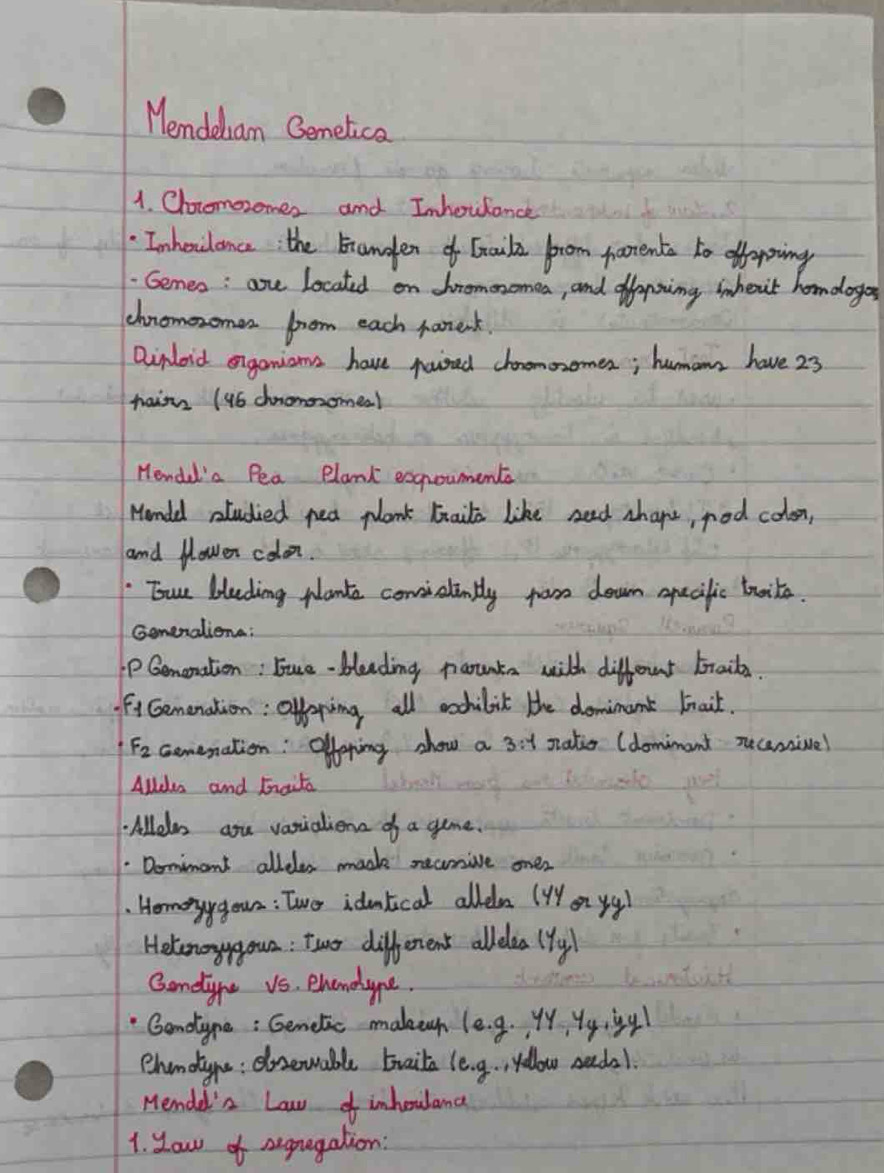 Mendelian Genetics
1. Chromosomes and Inheritance
• Inheritance : the transfer of traits from parents to offspring
- Genes : are located on chromosomes, and offspring inherit homologos
chromosomes from each parent.
Diploid organisms have paired chromosomes ; humans have 23
pairs (46 chromosomes)
Mendel's Pea Plant experiments
Mendel studied pea plant traits like seed shape, pod color,
and flower color.
• True bleeding plants consistently pass down specific traits.
Generations:
• P Generation : true - bleeding parents with different traits.
• F1 Generation : Offspring all exhibit the dominant trait.
• F2 Generation : Offsping show a 3:1 ratio (dominant recessive)
Alleles and traits
• Alleles are variations of a gene.
• Dominant alleles mask recessive ones
. Homozygous : Two identical alleles (YY or yy)
Heterozygous : Two different alleles (Yy)
Genotype VS. Phenotype.
• Genotype : Genetic makeup (e.g., YY, Yy, yy)
Phenotype : Observable traits (e.g., yellow seeds).
Mendel's Law of inheritance
1. Law of segregation: